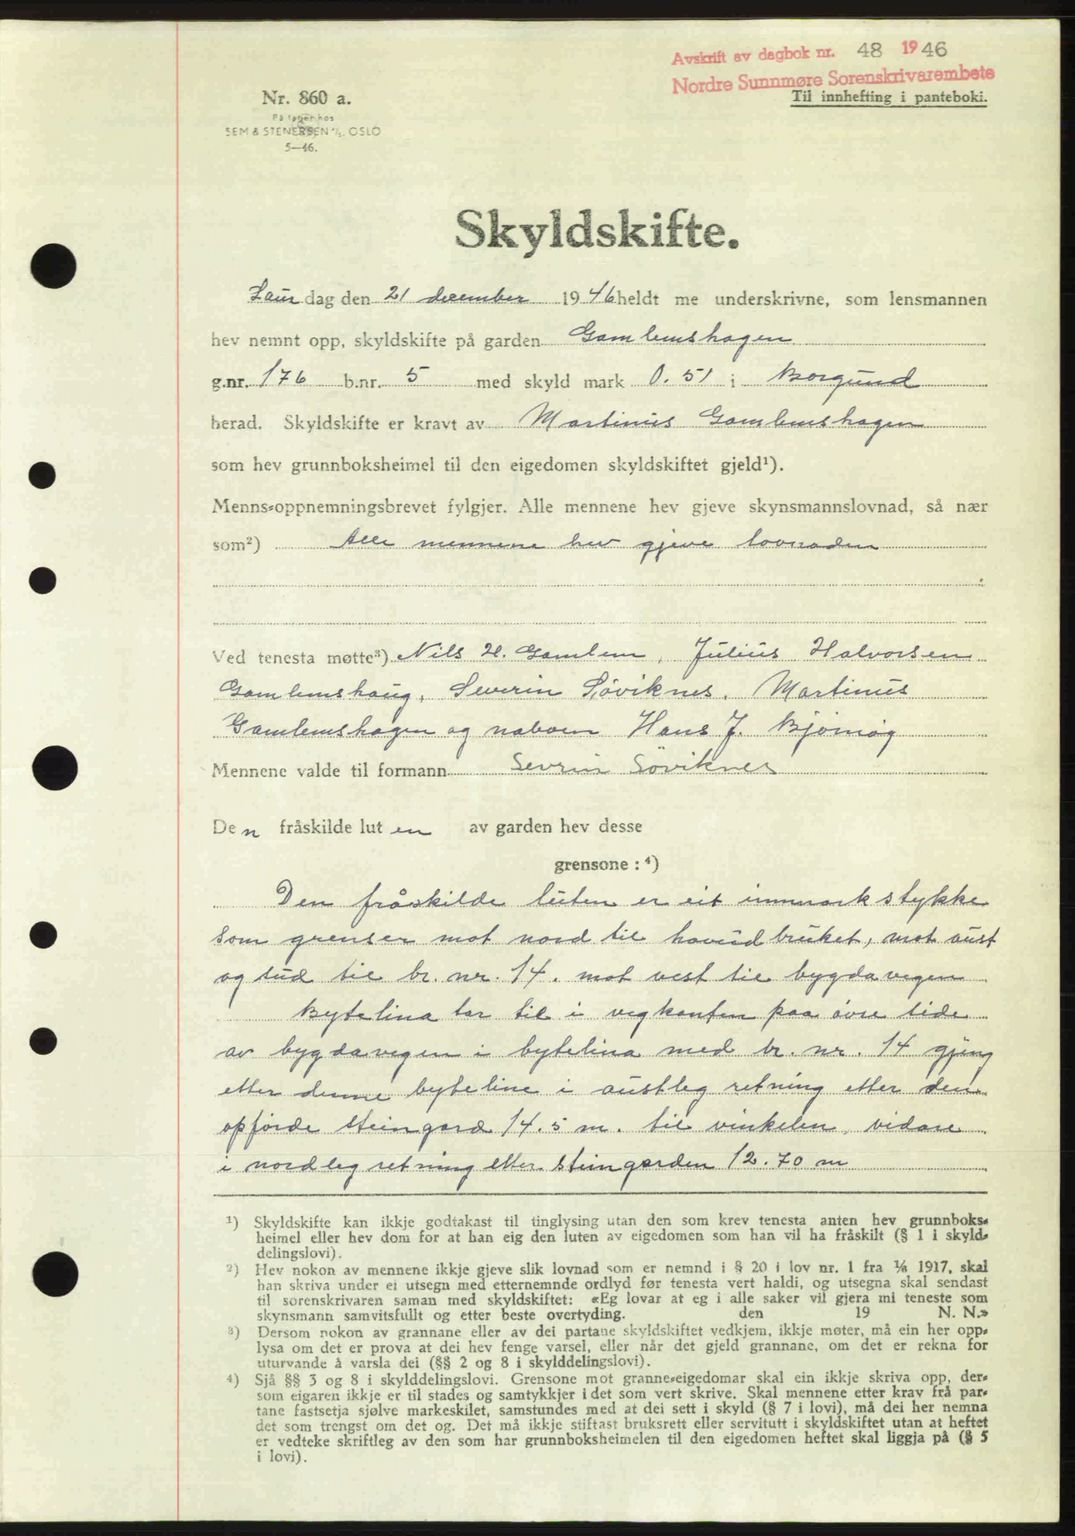 Avskrift av dagbok nr. 48 1946
Nordre Sunnmøre Sorenskrivarembete
Til innhefting i panteboki.
Nr. 860 a.
På lager hos
SEM & STENERSEN A/S, OSLO
5—46.
Skyldskifte.
Laur dag den 21 desember 1946 heldt me underskrivne, som lensmannen
hev nemnt opp, skyldskifte på garden Gamlemshagen
g.nr. 176 b.nr. 5 med skyld mark 0.51 i Borgund
herad. Skyldskifte er kravt av Martinus Gamlemshagen
som hev grunnboksheimel til den eigedomen skyldskiftet gjeld¹).
Menns-oppnemningsbrevet fylgjer. Alle mennene hev gjeve skynsmannslovnad, så nær
som²) Alle mennene hev gjeve lovnaden
Ved tenesta møtte³) Nils H. Gamlem, Julius Halvorsen
Gamlemshaug, Severin Søviknes, Martinus
Gamlemshagen og naboen Hans J.
Mennene valde til formann Sevrin Søviknes
Den fråskilde luten av garden hev desse
grensone : ⁴)
Den fråskilde luten er eit innmarkstykke
som grenser mot nord til hovudbruket, mot aust
og sud til br. nr. 14. mot vest til bygdavegen
Bytelina tar til i vegkanten paa øvre side
av bygdavegen i bytelina med br. nr. 14 gjeng
etter denne byteline i austleg retning etter den
opførde steingard 14.5 m. til vinkelen, vidare
i nordleg retning etter steingarden 12.70 m
¹) Skyldskifte kan ikkje godtakast til tinglysing utan den som krev tenesta anten hev grunnboks-
heimel eller hev dom for at han eig den luten av eigedomen som han vil ha fråskilt (§ 1 i skyld-
delingslovi).
²) Hev nokon av mennene ikkje gjeve slik lovnad som er nemnd i § 20 i lov nr. 1 fra 1/6 1917, skal
han skriva under ei utsegn med etternemnde ordlyd før tenesta vert haldi, og utsegna skal sendast
til sorenskrivaren saman med skyldskiftet: «Eg lovar at eg i alle saker vil gjera mi teneste som
skynsmann samvitsfullt og etter beste overtyding. den 19 N. N.»
³) Dersom nokon av grannane eller av dei partane skyldskiftet vedkjem, ikkje møter, må ein her opp-
lysa om det er prova at dei hev fenge varsel, eller når det gjeld grannane, om det er rekna for
uturvande å varsla dei (§§ 2 og 8 i skylddelingslovi).
⁴) Sjå §§ 3 og 8 i skylddelingslovi. Grensone mot granne-eigedomar skal ein ikkje skriva opp, der-
som eigaren ikkje er til stades og samtykkjer i det som vert skrive. Skal mennene etter krav frå par-
tane fastsetja sjølve markeskilet, samstundes med at dei sett i skyld (§ 7 i lovi), må dei her nemna
det som trengst om det og. Det må ikkje stiftast bruksrett eller servitutt i skyldskiftet utan at heftet
er vedteke skriftleg av den som har grunnboksheimelen til den eigedomen heftet skal liggja på (§ 5
i lovi).